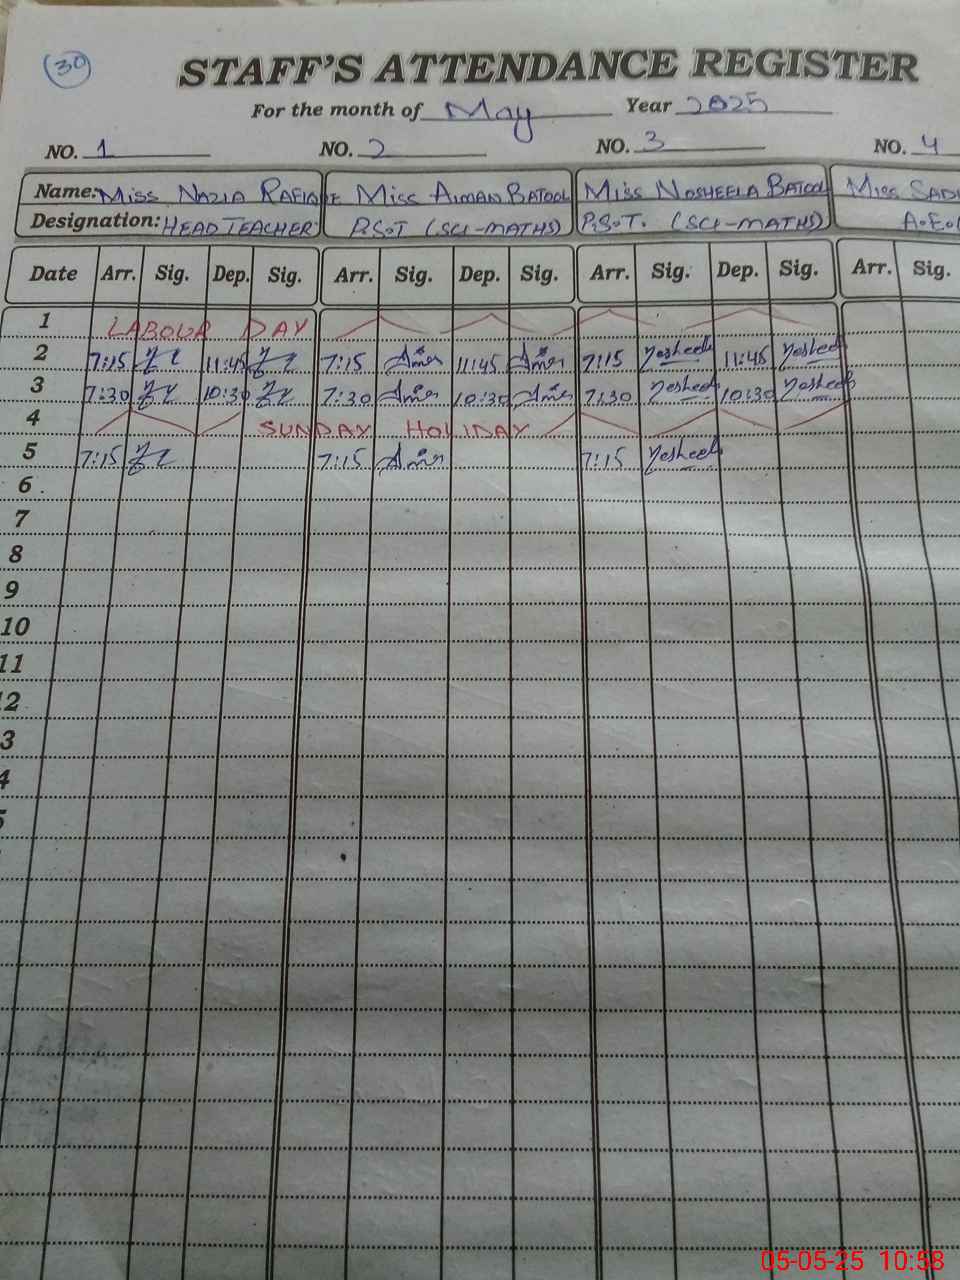 30
STAFF'S ATTENDANCE REGISTER
For the month of May Year 2025
NO. 1 NO. 2 NO. 3 NO. 4
Name: Miss NAZIA RAFIQUE Miss AIMAN BATOOL Miss NOSHEELA BATOOL Miss
Designation: HEAD TEACHER P.S.T (SCI-MATHS) P.S.T. (SCI-MATHS)
Date Arr. Sig. Dep. Sig. Arr. Sig. Dep. Sig. Arr. Sig. Dep. Sig. Arr. Sig.
1 LABOUR DAY
2 7:15 11:45 7:15 11:45 7:15 11:45
3 7:30 10:30 7:30 10:30 7:30 10:30
4 SUNDAY HOLIDAY
5 7:15 7:15 7:15
6
7
8
9
10
11
05-05-25 10:58